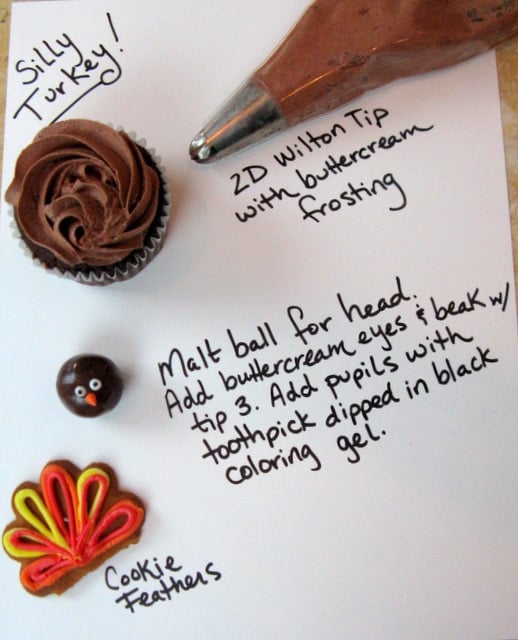 Silly
Turkey!
2D Wilton Tip
with buttercream
frosting
Malt ball for head.
Add buttercream eyes & beak w/
tip 3. Add pupils with
toothpick dipped in black
coloring gel.
Cookie
Feathers